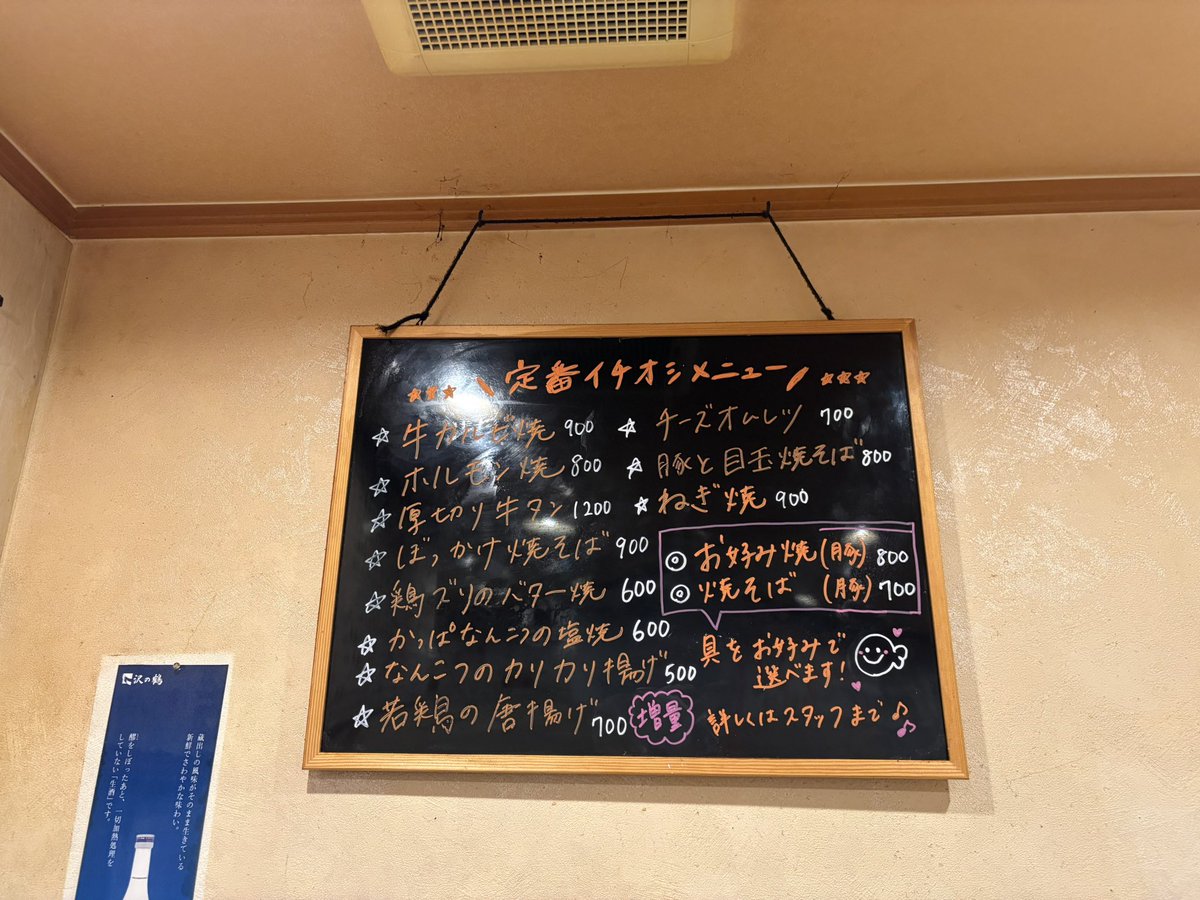 定番イチオシメニュー
☆ 牛カルビ焼 900
☆ ホルモン焼 800
☆ 厚切り牛タン 1200
☆ ぼっかけ焼そば 900
☆ 鶏ズリのバター焼 600
☆ かっぱなんこつの塩焼 600
☆ なんこつのカリカリ揚げ 500
☆ 若鶏の唐揚げ 700 増量
☆ チーズオムレツ 700
☆ 豚と目玉焼そば 800
☆ ねぎ焼 900
◎ お好み焼(豚) 800
◎ 焼そば (豚) 700
具をお好みで
選べます!
詳しくはスタッフまで♪♪
沢の鶴
蔵出しの風味がそのまま生きている
新鮮でさわやかな味わい。
醪をしぼったあと、一切加熱処理を
していない「生酒」です。